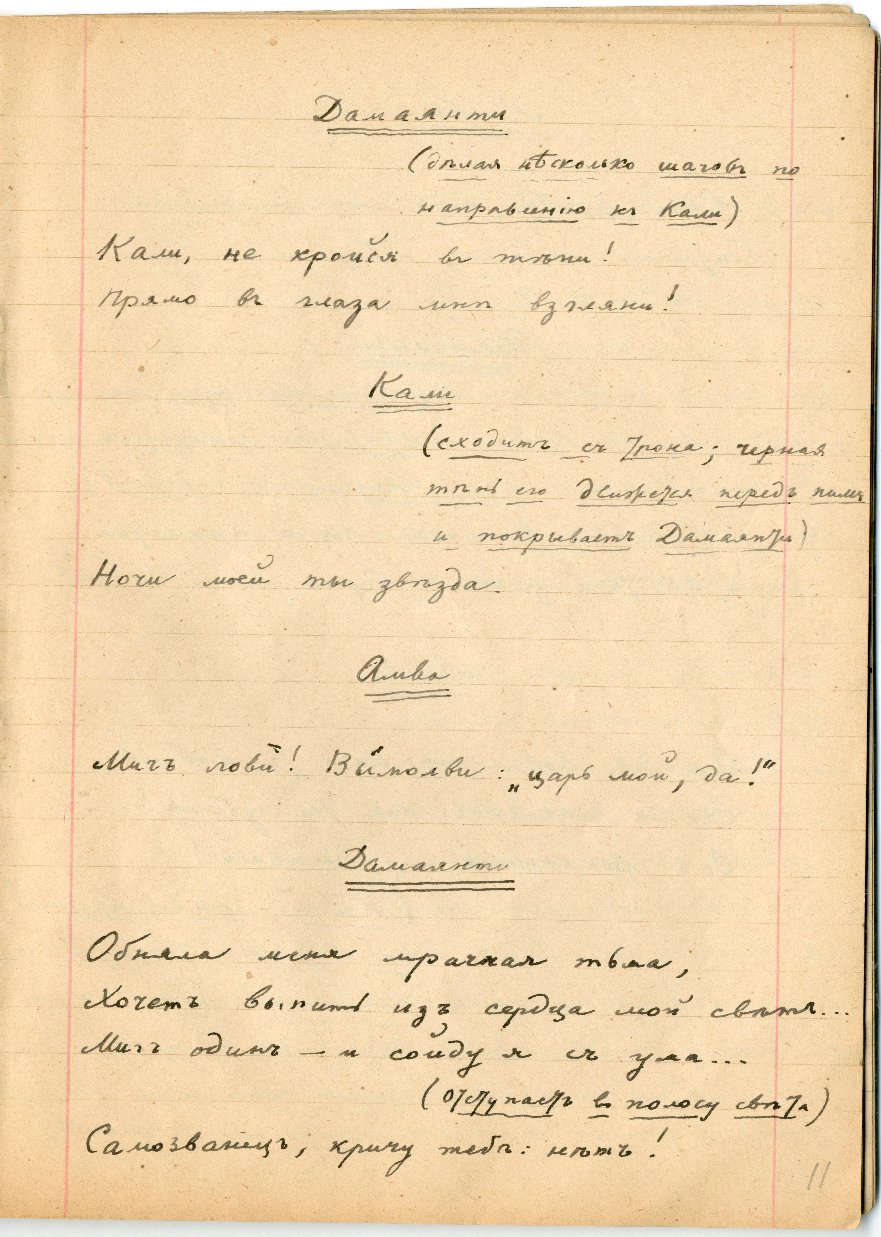 Дамаянти
(дѣлая нѣсколько шаговъ по
направленію къ Кали)
Кали, не кройся въ тѣни!
Прямо въ глаза мнѣ взгляни!
Кали
(сходитъ съ трона; черная
тѣнь его движется передъ нимъ
и покрываетъ Дамаянти)
Ночи моей ты звѣзда.
Амва
Мигъ лови́! Вы́молви: „царь мой, да!“
Дамаянти
Обняла меня мрачная тьма,
Хочетъ выпить изъ сердца мой свѣтъ...
Мигъ одинъ — и сойду я съ ума...
(отступаетъ въ полосу свѣта)
Самозванецъ, кричу тебѣ: нѣтъ!
11